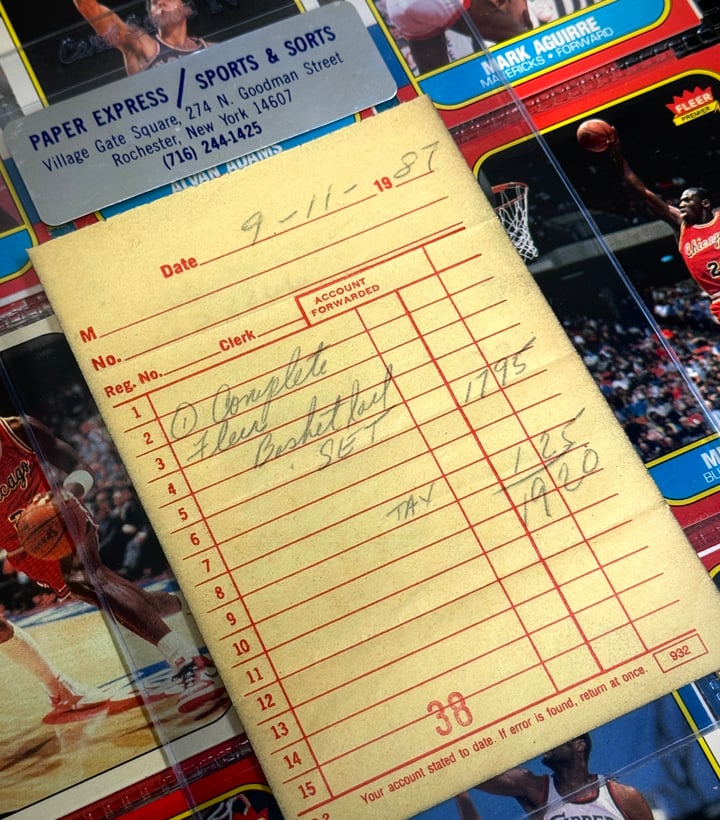 MARK AGUIRRE
MAVERICKS • FORWARD
PAPER EXPRESS / SPORTS & SORTS
Village Gate Square, 274 N. Goodman Street
Rochester, New York 14607
(716) 244-1425
ALVAN ADAMS
FLEER
PREMIER
Chicago
Date 9-11- 1987
M
No.
Reg. No. Clerk ACCOUNT
FORWARDED
1
2 ① Complete 1795
3 Fleer
4 Basketball
5 SET 125
6 TAX 1920
7
8
9
10
11
12
13
14
15
38
Your account stated to date. If error is found, return at once.
932